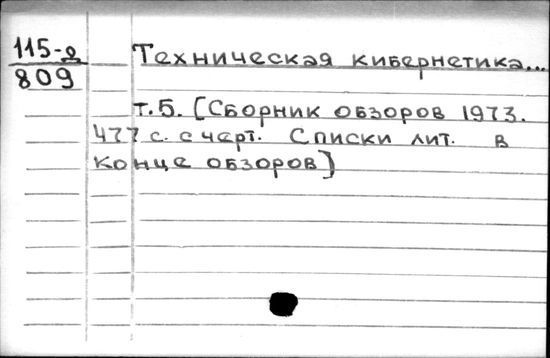 115-д
809
Техническая кибернетика...
т.5. [Сборник обзоров 1973.
477 с. с черт. Списки лит. в
конце обзоров]